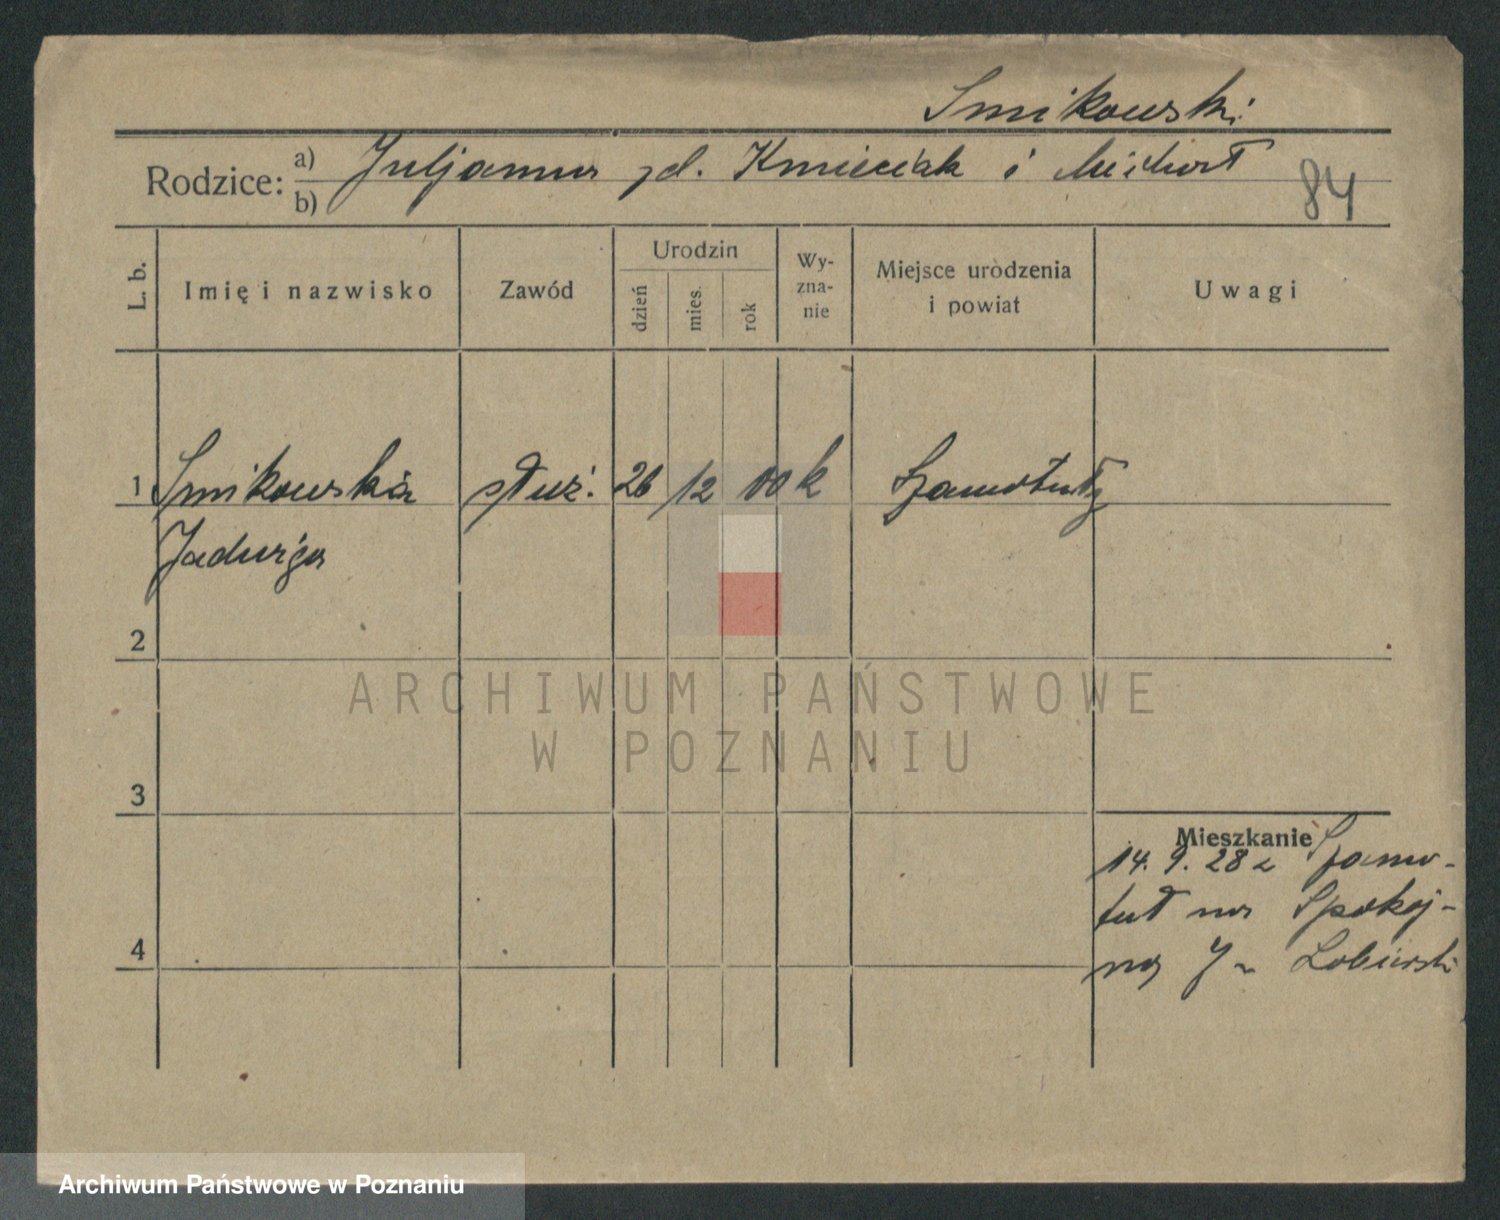 Smikowski
Rodzice: a) Juljanna zd. Kmieciak i Michał
b)
84
L. b.
Imię i nazwisko
Zawód
Urodzin
dzień
mies.
rok
Wy-
zna-
nie
Miejsce urodzenia
i powiat
Uwagi
1 Smikowska służ. 26 12 00 k Szamotuły
Jadwiga
2
3
4
Mieszkanie
14.9.28 z Szamo-
tuł na Spokoj-
ną
ARCHIWUM PAŃSTWOWE
W POZNANIU
Archiwum Państwowe w Poznaniu